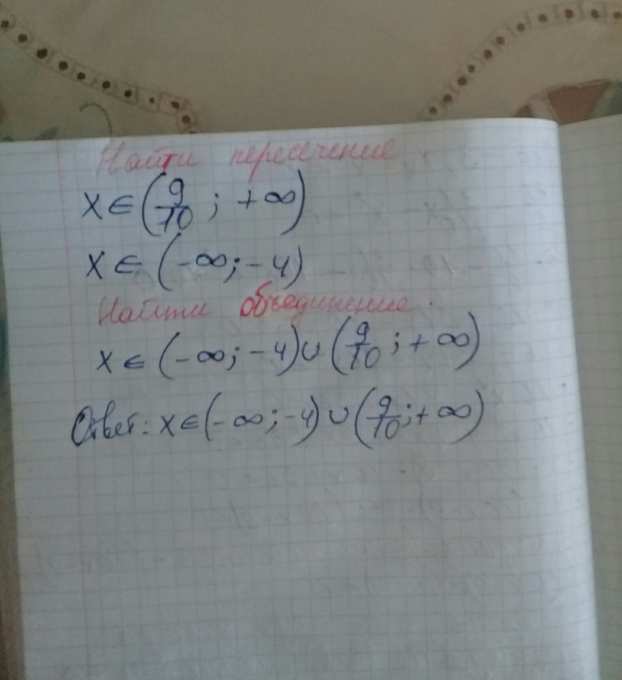 Найти пересечение
x ∈ (9/10 ; +∞)
x ∈ (-∞; -4)
Найти объединение.
x ∈ (-∞; -4) ∪ (9/10 ; +∞)
Ответ: x ∈ (-∞; -4) ∪ (9/10 ; +∞)